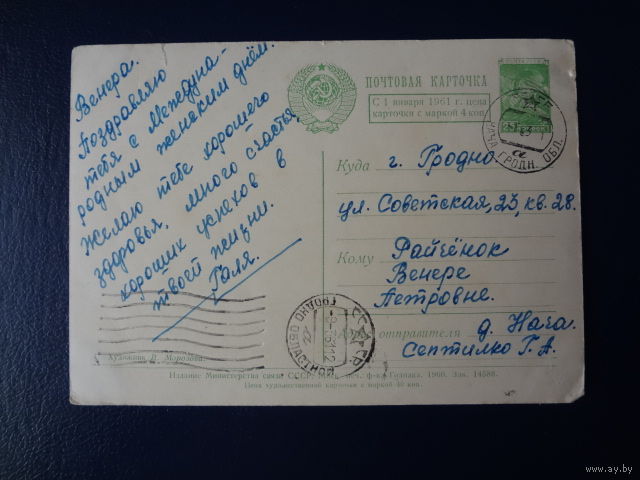 Венера.
Поздравляю
тебя с Междуна-
родным женским днём.
Желаю тебе хорошего
здоровья, много счастья,
хороших успехов в
твоей жизни.
Галя.
Художник В. Морозова.
ПОЧТОВАЯ КАРТОЧКА
С 1 января 1961 г. цена
карточки с маркой 4 коп.
Куда г. Гродно.
ул. Советская, 23, кв. 28.
Кому Райчёнок
Венере
Петровне.
отправителя д. Нача.
Септилко Г. А.
НАЧА ГРОДН. ОБЛ.
СССР
ГРОДНО ОБЛАСТНОЙ
Издание Министерства связи СССР. ф-ка Гознака. 1960. Зак. 14588.
Цена художественной карточки с маркой 40 коп.
www.ay.by